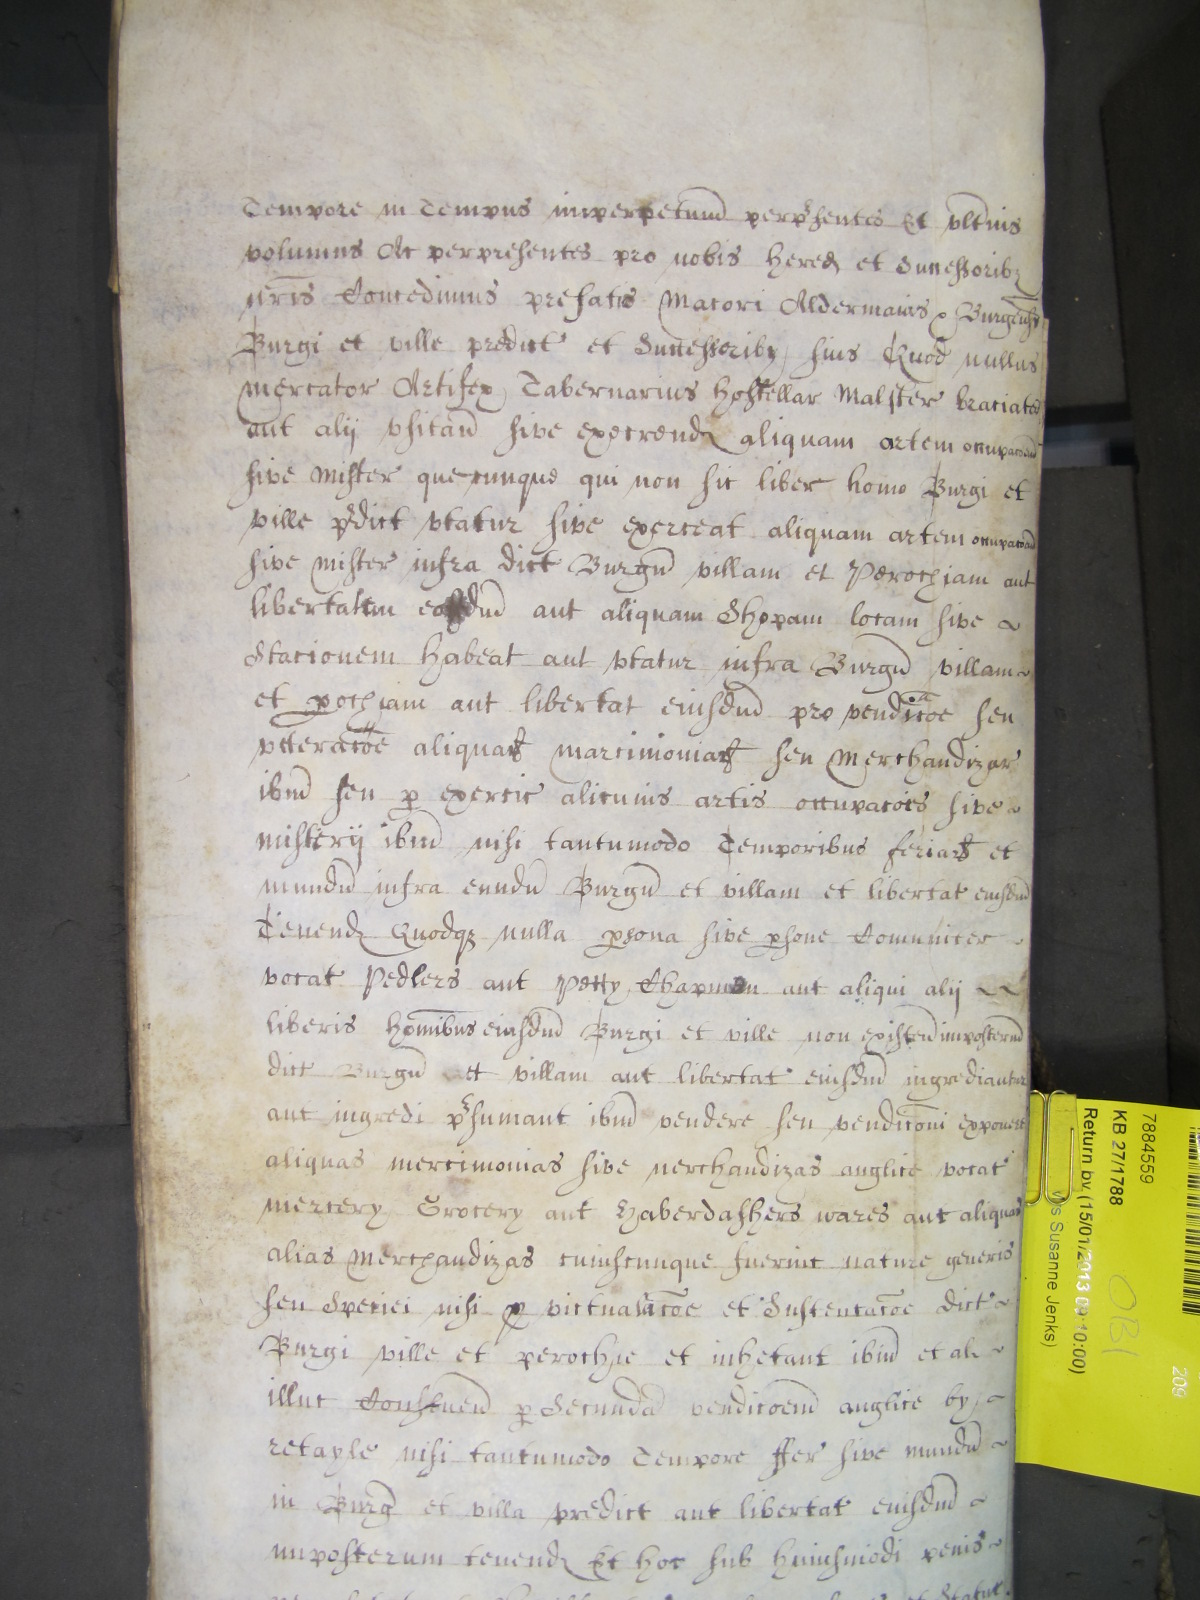 Tempore in Tempus imperpetuum perpresentes Et ulterius
volumus Ac perpresentes pro nobis hered et Successoribz
nris Concedimus prefatis Maiori Aldermanis Burgensz
Burgi et ville predict et Successoribz suis Quod nullus
mercator Artifex Tabernarius hostellar Malster braciator
aut alij usitand sive exercend aliquam artem occupacoem
sive mister quecunque qui non sit liber homo Burgi et
ville pdict utatur sive exerceat aliquam artem occupacoem
sive mister infra dict Burgu villam et Perochiam aut
libertatem aut aliquam Shopam locam sive ~
Stacionem habeat aut utatur infra Burgu villam ~
et pochiam aut libertat eiusdm pro vendicoe seu
utteracoe aliquar marcimoniar seu Merchandizar
ibm seu p exercic alicuius artis occupacois sive ~
misterij ibm nisi tantumodo Temporibus feriar et
mundu infra eundu Burgu et villam et libertat eiusdm
Tenend Quodqz nulla psona sive psone Comuniter ~
vocat Pedlers aut Petty Chapmen aut aliqui alij ~ ~
liberis hominibus eiusdm Burgi et ville non existen imposterum
dict Burgu et villam aut libertat eiusdm ingrediantur
aut ingredi psumant ibm vendere seu vendiconi exponere
aliquas mercimonias sive merchandizas anglice vocat
mercery Grocery aut haberdashers wares aut aliquas
alias Merchandizas cuiuscunque fuerint nature generis
seu Speciei nisi p victualacoe et Sustentacoe dict ~
Burgi ville et perochie et inhetant ibm et al ~
illuc Confluen p Secundã vendicoem anglice by ~
retayle nisi tantumodo Tempore ffer sive mundu ~
in Burg et villa predict aut libertat eiusdm ~
imposterum tenend Et hoc sub huiusmodi penis ~
et Statut
7884559
KB 27/1788
Return by (15/01/2013 09:10:00)
Susanne Jenks)
OBI
209